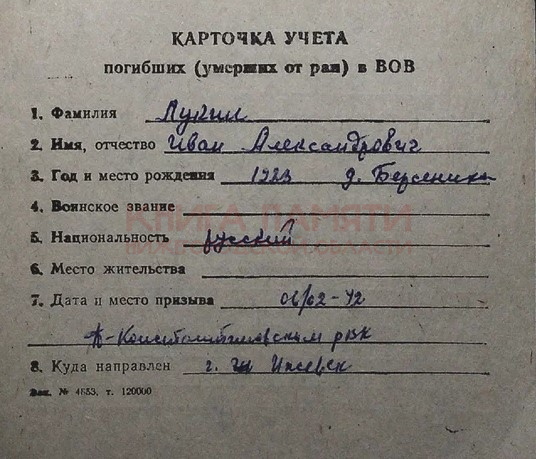 КАРТОЧКА УЧЕТА
погибших (умерших от ран) в ВОВ
1. Фамилия Лукин
2. Имя, отчество Иван Александрович
3. Год и место рождения 1923 д. Березник
4. Воинское звание
КНИГА ПАМЯТИ
5. Национальность русский
КИРОВСКОЙ ОБЛАСТИ
6. Место жительства
7. Дата и место призыва 01/02-42
РВК
8. Куда направлен г. Ижевск
Зак. № 4853, т. 120000